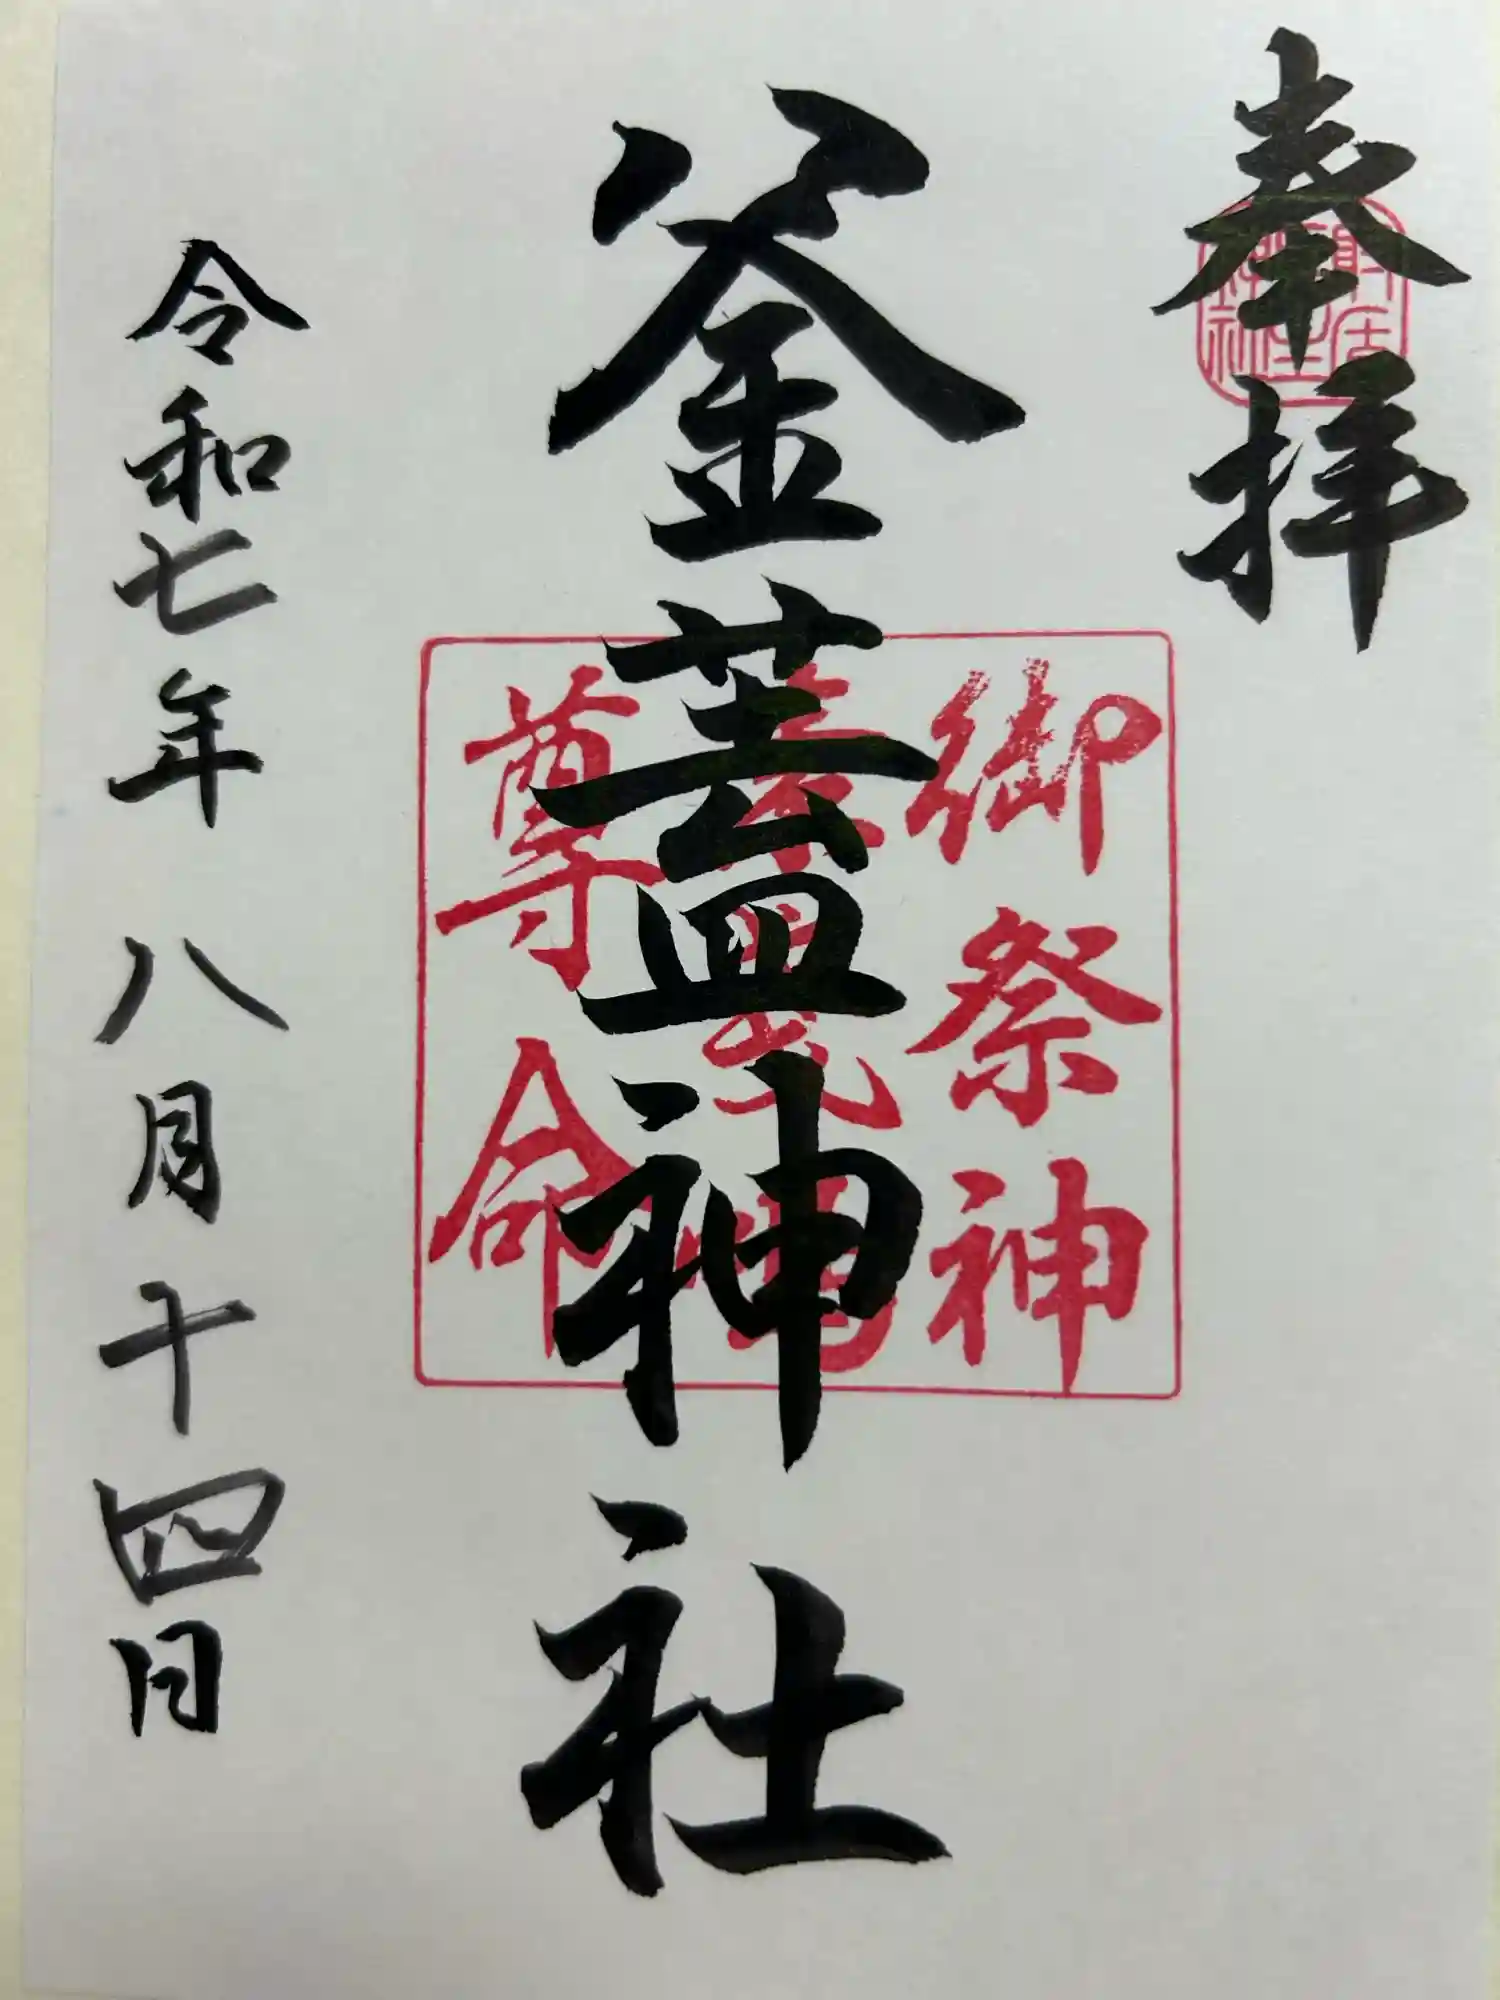 奉拝
釜蓋神社
御祭神
尊命
令和七年八月十四日